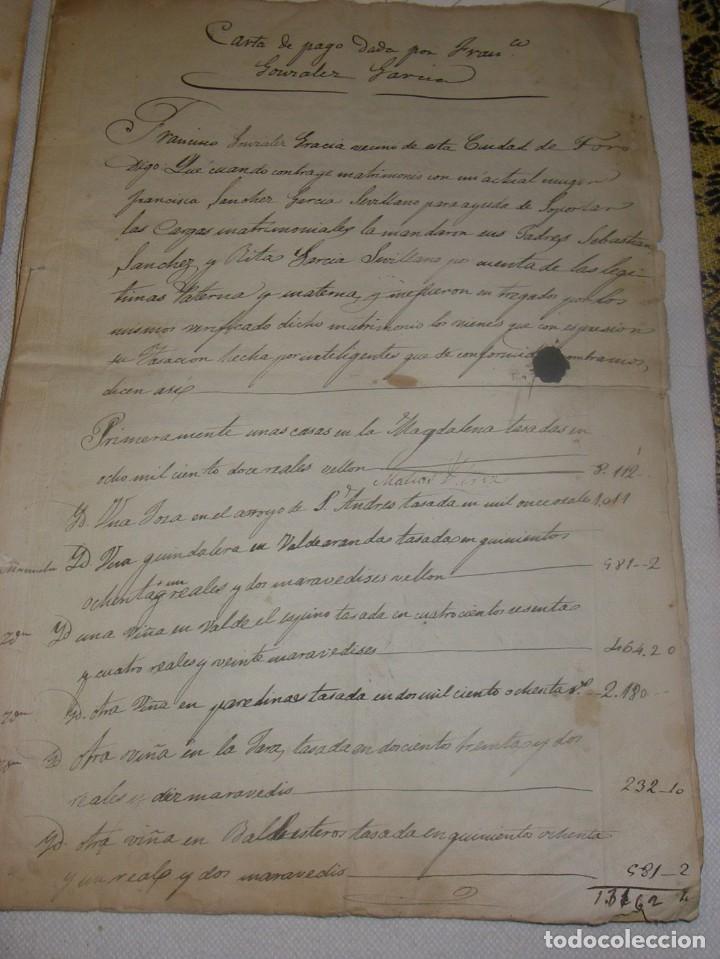 Carta de pago Dada por Fran.co
Gonzalez Garcia
Francisco Gonzalez Gracia vecino de esta Ciudad de Toro
Digo Que cuando contraje matrimonio con mi actual muger
francisca Sanchez Garcia Sevillano para ayuda de Soportar
las Cargas matrimoniales la mandaron sus Padres Sebastian
Sanchez y Rita Garcia Sevillano por cuenta de las legi
timas Paterna y materna, y me fueron en tregados por los
mismos verificado dicho matrimonio los vienes que con espresion
su Tasacion hecha por inteligentes que de conformidad nombramos,
dicen asi
Primeramente unas casas en la Magdalena tasadas en
ocho mil ciento doce reales vellon 8.112
Yd. Una Tora en el arroyo de Sn Andres tasada en mil once reales 1.011
Yd Una guindalera en Valdearandas tasada en quinientos
ochenta y un reales y dos maravedises vellon 581--2
Yd una Viña en Valde el espino tasada en cuatrocientos sesenta
y cuatro reales y veinte maravedises 464.20
Yd. otra Viña en paredinas tasada en dos mil ciento ochenta rs. --2.180--
Yd otra viña en la Jara, tasada en doscientos treinta y dos
reales y diez maravedis 232-10
Yd. otra viña en Ballesteros tasada en quinientos ochenta
y un reales y dos maravedis 581--2
todocoleccion
todocoleccion.net